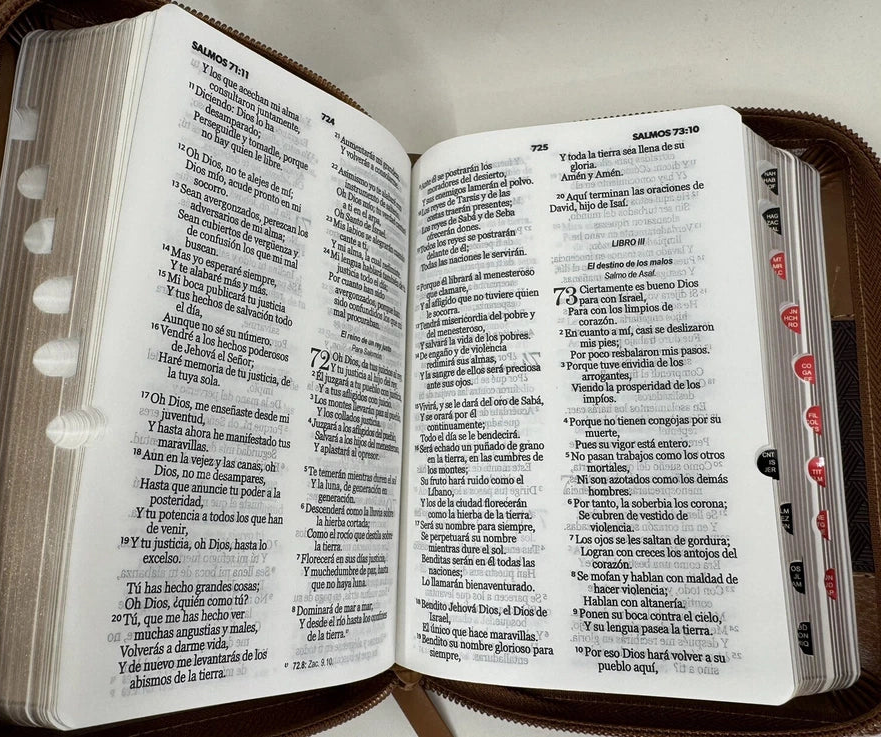 SALMOS 71:11
724
Y los que acechan mi alma
consultaron juntamente,
11 Diciendo: Dios lo ha
desamparado;
Perseguidle y tomadle, porque
no hay quien le libre.
12 Oh Dios, no te alejes de mí;
Dios mío, acude pronto en mi
socorro.
13 Sean avergonzados, perezcan los
adversarios de mi alma;
Sean cubiertos de vergüenza y
de confusión los que mi mal
buscan.
14 Mas yo esperaré siempre,
Y te alabaré más y más.
15 Mi boca publicará tu justicia
Y tus hechos de salvación todo
el día,
Aunque no sé su número.
16 Vendré a los hechos poderosos
de Jehová el Señor;
Haré memoria de tu justicia, de
la tuya sola.
17 Oh Dios, me enseñaste desde mi
juventud,
Y hasta ahora he manifestado tus
maravillas.
18 Aun en la vejez y las canas, oh
Dios, no me desampares,
Hasta que anuncie tu poder a la
posteridad,
Y tu potencia a todos los que han
de venir,
19 Y tu justicia, oh Dios, hasta lo
excelso.
Tú has hecho grandes cosas;
Oh Dios, ¿quién como tú?
20 Tú, que me has hecho ver
muchas angustias y males,
Volverás a darme vida,
Y de nuevo me levantarás de los
abismos de la tierra.
21 Aumentarás mi
Y volverás a
22 Asimismo yo te
instrumento de
Oh Dios mío; tu verdad
a ti en el arpa,
Oh Santo de Israel.
23 Mis labios se alegrarán
cante a ti,
Y mi alma, la cual
24 Mi lengua hablará también
justicia todo el día;
Por cuanto han sido
avergonzados, porque han
sido confundidos los que mi
mal procuraban.
El reino de un rey justo
Para Salomón.
72 Oh Dios, da tus juicios al rey,
Y tu justicia al hijo del rey.
2 Él juzgará a tu pueblo con
Y a tus afligidos con juicio.
3 Los montes llevarán paz al pueblo,
Y los collados justicia.
4 Juzgará a los afligidos del pueblo,
Salvará a los hijos del menesteroso,
Y aplastará al opresor.
5 Te temerán mientras duren el sol
Y la luna, de generación en
generación.
6 Descenderá como la lluvia sobre
la hierba cortada;
Como el rocío que destila sobre
la tierra.
7 Florecerá en sus días justicia,
Y muchedumbre de paz, hasta
que no haya luna.
8 Dominará de mar a mar,
Y desde el río hasta los confines
de la tierra.
72.8: Zac. 9.10.
725
SALMOS 73:10
Ante él se postrarán los
moradores del desierto,
Y sus enemigos lamerán el polvo.
10 Los reyes de Tarsis y de las
costas traerán presentes;
Los reyes de Sabá y de Seba
ofrecerán dones.
11 Todos los reyes se postrarán
delante de él;
Todas las naciones le servirán.
12 Porque él librará al menesteroso
que clamare,
Y al afligido que no tuviere quien
le socorra.
13 Tendrá misericordia del pobre y
del menesteroso,
Y salvará la vida de los pobres.
14 De engaño y de violencia
redimirá sus almas,
Y la sangre de ellos será preciosa
ante sus ojos.
15 Vivirá, y se le dará del oro de Sabá,
Y se orará por él
continuamente;
Todo el día se le bendecirá.
16 Será echado un puñado de grano
en la tierra, en las cumbres de
los montes;
Su fruto hará ruido como el
Líbano,
Y los de la ciudad florecerán
como la hierba de la tierra.
17 Será su nombre para siempre,
Se perpetuará su nombre
mientras dure el sol.
Benditas serán en él todas las
naciones;
Lo llamarán bienaventurado.
18 Bendito Jehová Dios, el Dios de
Israel,
El único que hace maravillas.
19 Bendito su nombre glorioso para
siempre,
Y toda la tierra sea llena de su
gloria.
Amén y Amén.
20 Aquí terminan las oraciones de
David, hijo de Isaí.
LIBRO III
El destino de los malos
Salmo de Asaf.
73 Ciertamente es bueno Dios
para con Israel,
Para con los limpios de
corazón.
2 En cuanto a mí, casi se deslizaron
mis pies;
Por poco resbalaron mis pasos.
3 Porque tuve envidia de los
arrogantes,
Viendo la prosperidad de los
impíos.
4 Porque no tienen congojas por su
muerte,
Pues su vigor está entero.
5 No pasan trabajos como los otros
mortales,
Ni son azotados como los demás
hombres.
6 Por tanto, la soberbia los corona;
Se cubren de vestido de
violencia.
7 Los ojos se les saltan de gordura;
Logran con creces los antojos del
corazón.
8 Se mofan y hablan con maldad de
hacer violencia;
Hablan con altanería.
9 Ponen su boca contra el cielo,
Y su lengua pasea la tierra.
10 Por eso Dios hará volver a su
pueblo aquí,
HAG
ZAC
MT
MR
LC
JN
HCH
RO
CO
GA
FIL
COL
CNT
IS
JER
TIT